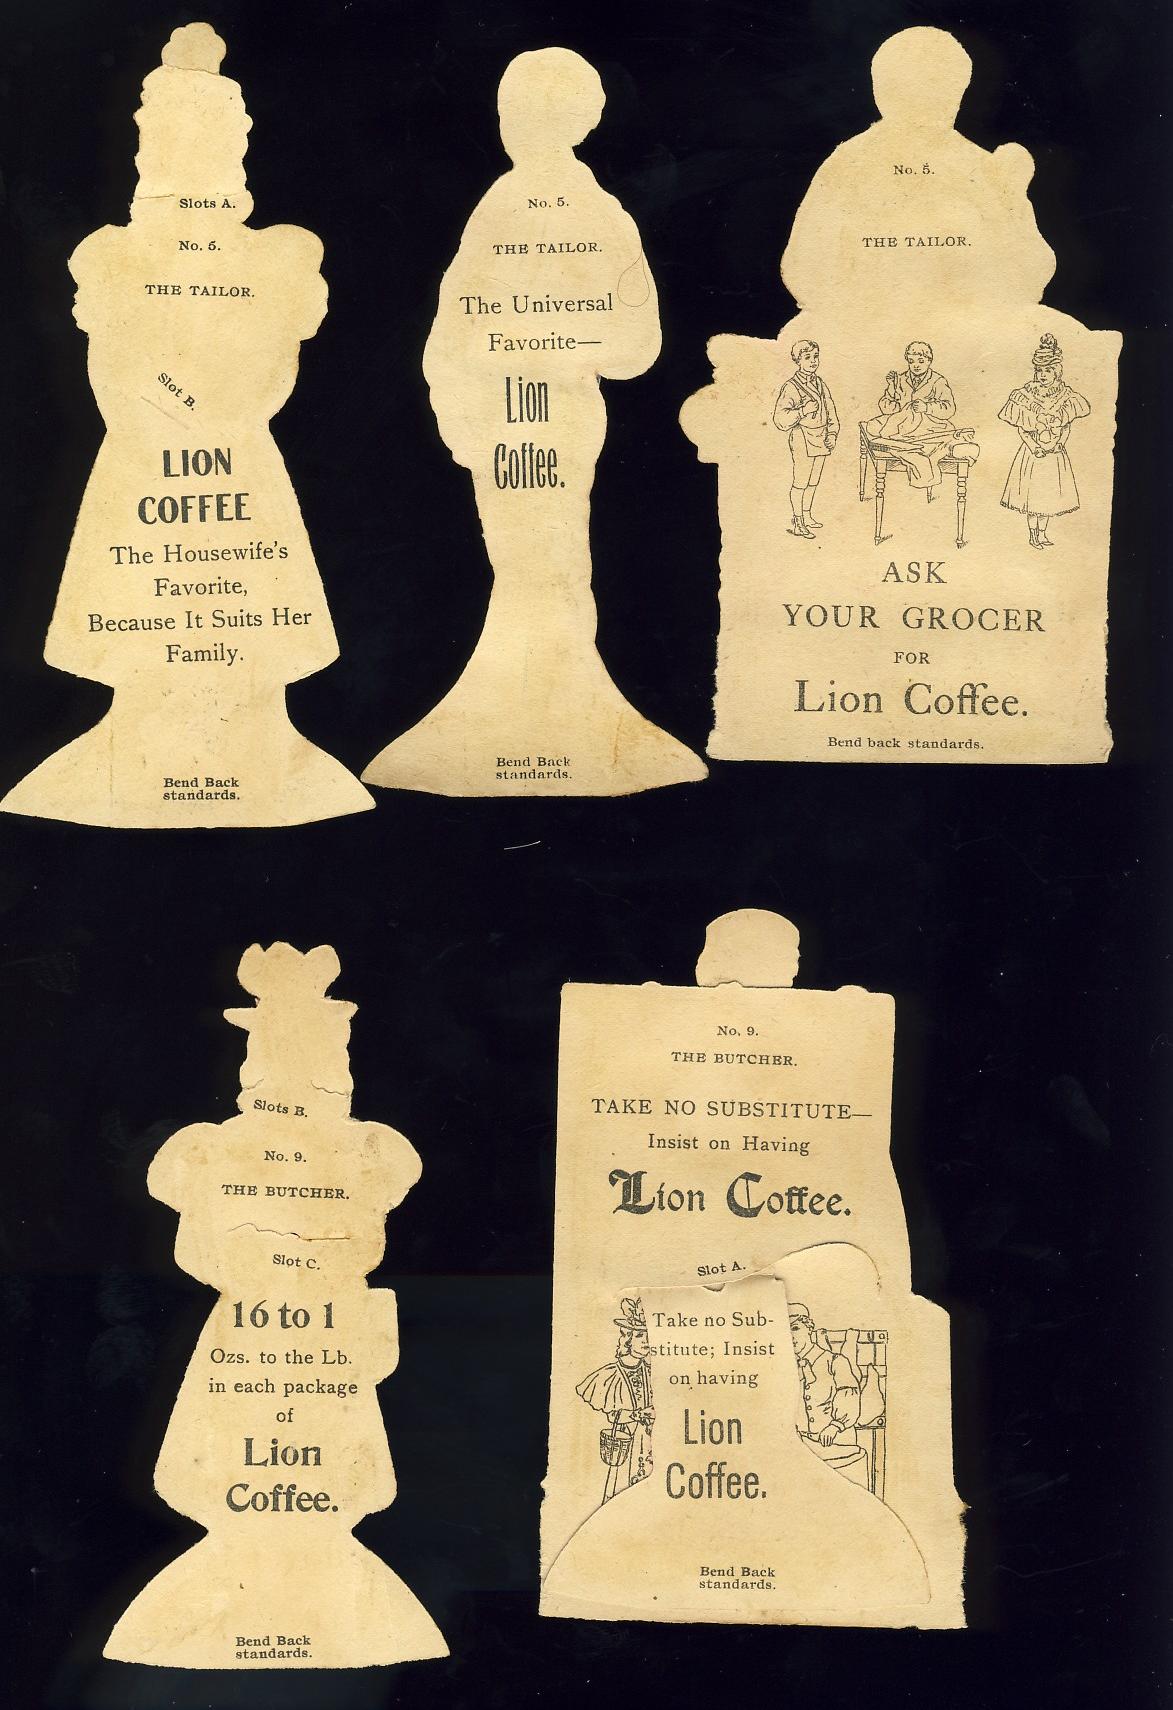 Slots A.
No. 5.
THE TAILOR.
Slot B.
LION
COFFEE
The Housewife's
Favorite,
Because It Suits Her
Family.
Bend Back
standards.
No. 5.
THE TAILOR.
The Universal
Favorite—
Lion
Coffee.
Bend Back
standards.
No. 5.
THE TAILOR.
ASK
YOUR GROCER
FOR
Lion Coffee.
Bend back standards.
Slots B.
No. 9.
THE BUTCHER.
Slot C.
16 to 1
Ozs. to the Lb.
in each package
of
Lion
Coffee.
Bend Back
standards.
No. 9.
THE BUTCHER.
TAKE NO SUBSTITUTE—
Insist on Having
Lion Coffee.
Slot A.
Take no Sub-
stitute; Insist
on having
Lion
Coffee.
Bend Back
standards.